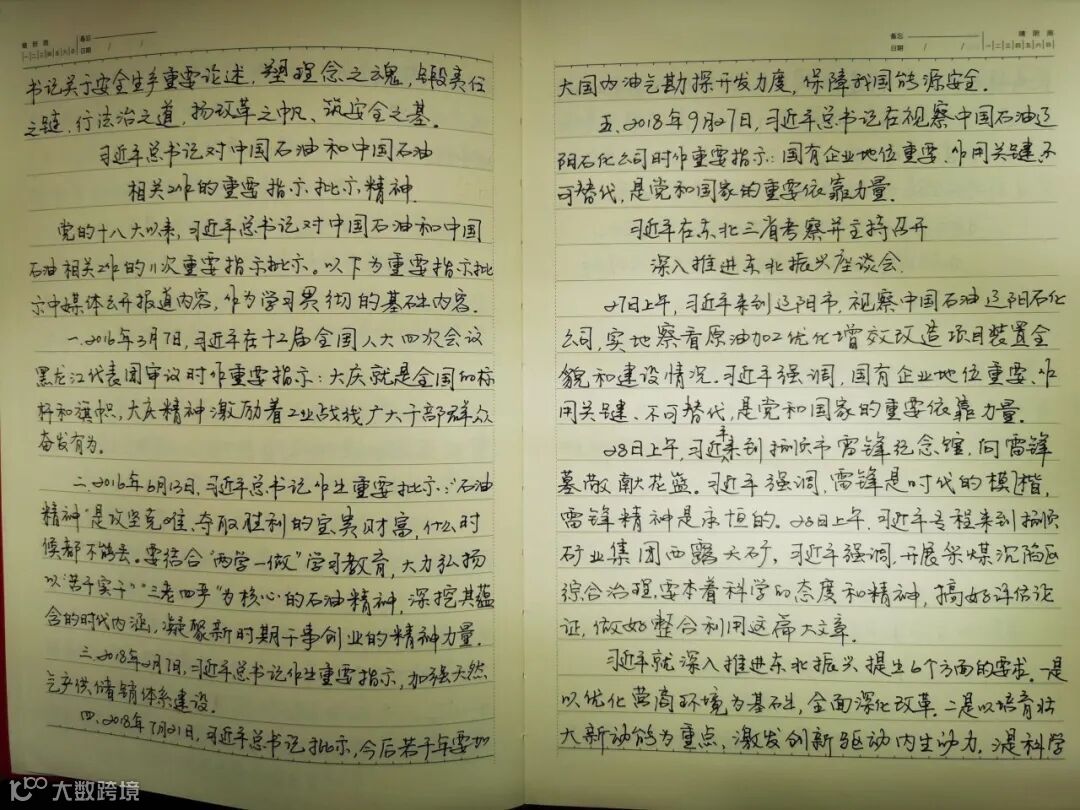 晴 阴 雨
备忘
一 二 三 四 五 六 日
日期 / /
书记关于安全生产重要论述，塑理念之魂，锻责任
之链，行法治之道，扬改革之帆、筑安全之基。
习近平总书记对中国石油和中国石油
相关工作的重要指示批示精神
党的十八大以来，习近平总书记对中国石油和中国
石油相关工作的11次重要指示批示。以下为重要指示批
示中媒体公开报道内容，作为学习贯彻的基础内容。
一、2016年3月7日，习近平在十二届全国人大四次会议
黑龙江代表团审议时作重要指示：大庆就是全国的标
杆和旗帜，大庆精神激励着工业战线广大干部群众
奋发有为。
二、2016年6月13日，习近平总书记作出重要批示："石油
精神"是攻坚克难、夺取胜利的宝贵财富，什么时
候都不能丢。要结合"两学一做"学习教育，大力弘扬
以"苦干实干""三老四严"为核心的石油精神，深挖其蕴
含的时代内涵，凝聚新时期干事创业的精神力量。
三、2018年2月7日，习近平总书记作出重要指示，加强天然
气产供储销体系建设。
四、2018年7月21日，习近平总书记批示，今后若干年要加
备忘
晴 阴 雨
日期 / /
一 二 三 四 五 六 日
大国内油气勘探开发力度，保障我国能源安全。
五、2018年9月27日，习近平总书记在视察中国石油辽
阳石化公司时作重要指示：国有企业地位重要、作用关键、不
可替代，是党和国家的重要依靠力量。
习近平在东北三省考察并主持召开
深入推进东北振兴座谈会
27日上午，习近平来到辽阳市，视察中国石油辽阳石化
公司，实地察看原油加工优化增效改造项目装置全
貌和建设情况。习近平强调，国有企业地位重要、作
用关键、不可替代，是党和国家的重要依靠力量。
28日上午，习近平来到抚顺市雷锋纪念馆，向雷锋
墓敬献花篮。习近平强调，雷锋是时代的楷模，
雷锋精神是永恒的。28日上午，习近平专程来到抚顺
矿业集团西露天矿，习近平强调，开展采煤沉陷区
综合治理，要本着科学的态度和精神，搞好评估论
证，做好整合利用这篇大文章。
习近平就深入推进东北振兴提出6个方面的要求。一是
以优化营商环境为基础，全面深化改革。二是以培育壮
大新动能为重点，激发创新驱动内生动力。三是科学
大数跨境